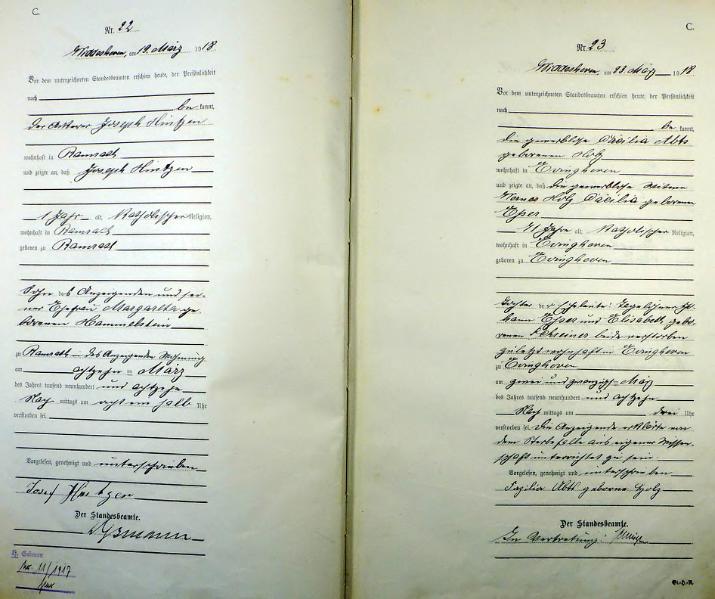 C.
Nr. 22
am 19. März 1918
Vor dem unterzeichneten Standesbeamten erschien heute, der Persönlichkeit
nach
be kannt,
der Ackerer Joseph Hintzen
wohnhaft in Ramrath
und zeigte an, daß Joseph Hintzen
1 Jahr alt, Katholischer Religion,
wohnhaft in Ramrath
geboren zu Ramrath
Sohn des Anzeigenden und sei-
ner Ehefrau Margaretha ge-
borenen
zu Ramrath in des Anzeigenden Wohnung
am achtzehn ten März
des Jahres tausend neunhundert und achtzehn
Nach mittags um acht ein halb Uhr
verstorben sei.
Vorgelesen, genehmigt und unterschrieben
Josef Hintzen
Der Standesbeamte.
C.
Nr. 23
am 23. März 1918
Vor dem unterzeichneten Standesbeamten erschien heute, der Persönlichkeit
nach
be kannt,
die gewerblose Cäcilia Abts
geborenen Holz
wohnhaft in Evinghoven
und zeigte an, daß die gewerblose Witwe
Holz Cäcilia geborene
Esser
71 Jahre alt, Katholischer Religion,
wohnhaft in Evinghoven
geboren zu Evinghoven
Tochter der Eheleute: Tagelöhner Jo-
hann Esser und Elisabeth, gebo-
renen beide verstorben
zuletzt wohnhaft in Evinghoven
zu Evinghoven
am zwei und zwanzigsten März
des Jahres tausend neunhundert und achtzehn
Nach mittags um drei Uhr
verstorben sei. Die Anzeigende erklärte von
dem Sterbefalle aus eigener Wissen-
schaft unterrichtet zu sein.
Vorgelesen, genehmigt und unterschrieben
Abts geborene Holz
Der Standesbeamte.
In Vertretung: